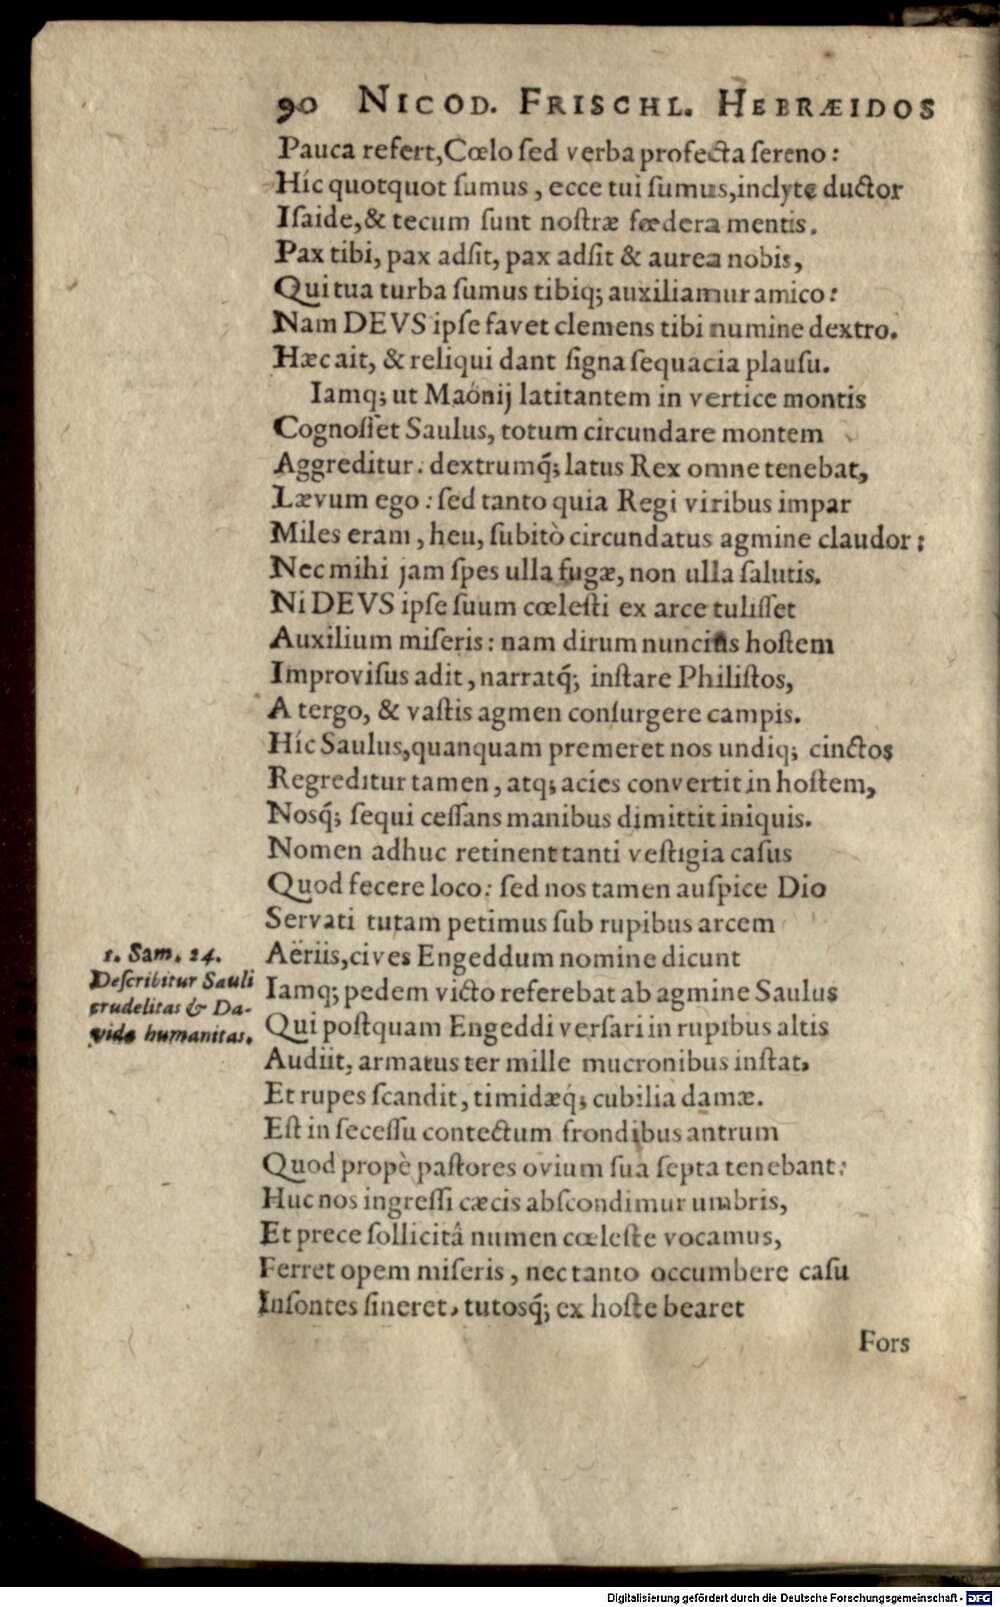 90 NICOD. FRISCHL. HEBRÆIDOS
Pauca refert, Cœlo ſed verba profecta ſereno:
Híc quotquot ſumus, ecce tui ſumus, inclyte ductor
Iſaide, & tecum ſunt noſtræ fœdera mentis.
Pax tibi, pax adſit, pax adſit & aurea nobis,
Qui tua turba ſumus tibiq; auxiliamur amico:
Nam DEVS ipſe favet clemens tibi numine dextro.
Hæc ait, & reliqui dant ſigna ſequacia plauſu.
Iamq; ut Maönij latitantem in vertice montis
Cognoſſet Saulus, totum circundare montem
Aggreditur: dextrumq́; latus Rex omne tenebat,
Lævum ego: ſed tanto quia Regi viribus impar
Miles eram, heu, ſubitò circundatus agmine claudor:
Nec mihi jam ſpes ulla fugæ, non ulla ſalutis.
Ni DEVS ipſe ſuum cœleſti ex arce tuliſſet
Auxilium miſeris: nam dirum nuncius hoſtem
Improviſus adit, narratq́; inſtare Philiſtos,
A tergo, & vaſtis agmen conſurgere campis.
Híc Saulus, quanquam premeret nos undiq; cinctos
Regreditur tamen, atq; acies convertit in hoſtem,
Nosq́; ſequi ceſſans manibus dimittit iniquis.
Nomen adhuc retinent tanti veſtigia caſus
Quod fecere loco: ſed nos tamen auſpice Dio
Servati tutam petimus ſub rupibus arcem
Aëriis, cives Engeddum nomine dicunt
1. Sam. 24.
Deſcribitur Sauli
crudelitas & Da-
vidis humanitas.
Iamq; pedem victo referebat ab agmine Saulus
Qui poſtquam Engeddi verſari in rupibus altis
Audiit, armatus ter mille mucronibus inſtat,
Et rupes ſcandit, timidæq́; cubilia damæ.
Eſt in ſeceſſu contectum frondibus antrum
Quod propè paſtores ovium ſua ſepta tenebant:
Huc nos ingreſſi cæcis abſcondimur umbris,
Et prece ſollicitâ numen cœleſte vocamus,
Ferret opem miſeris, nec tanto occumbere caſu
Inſontes ſineret, tutosq́; ex hoſte bearet
Fors
Digitalisierung gefördert durch die Deutsche Forschungsgemeinschaft - DFG